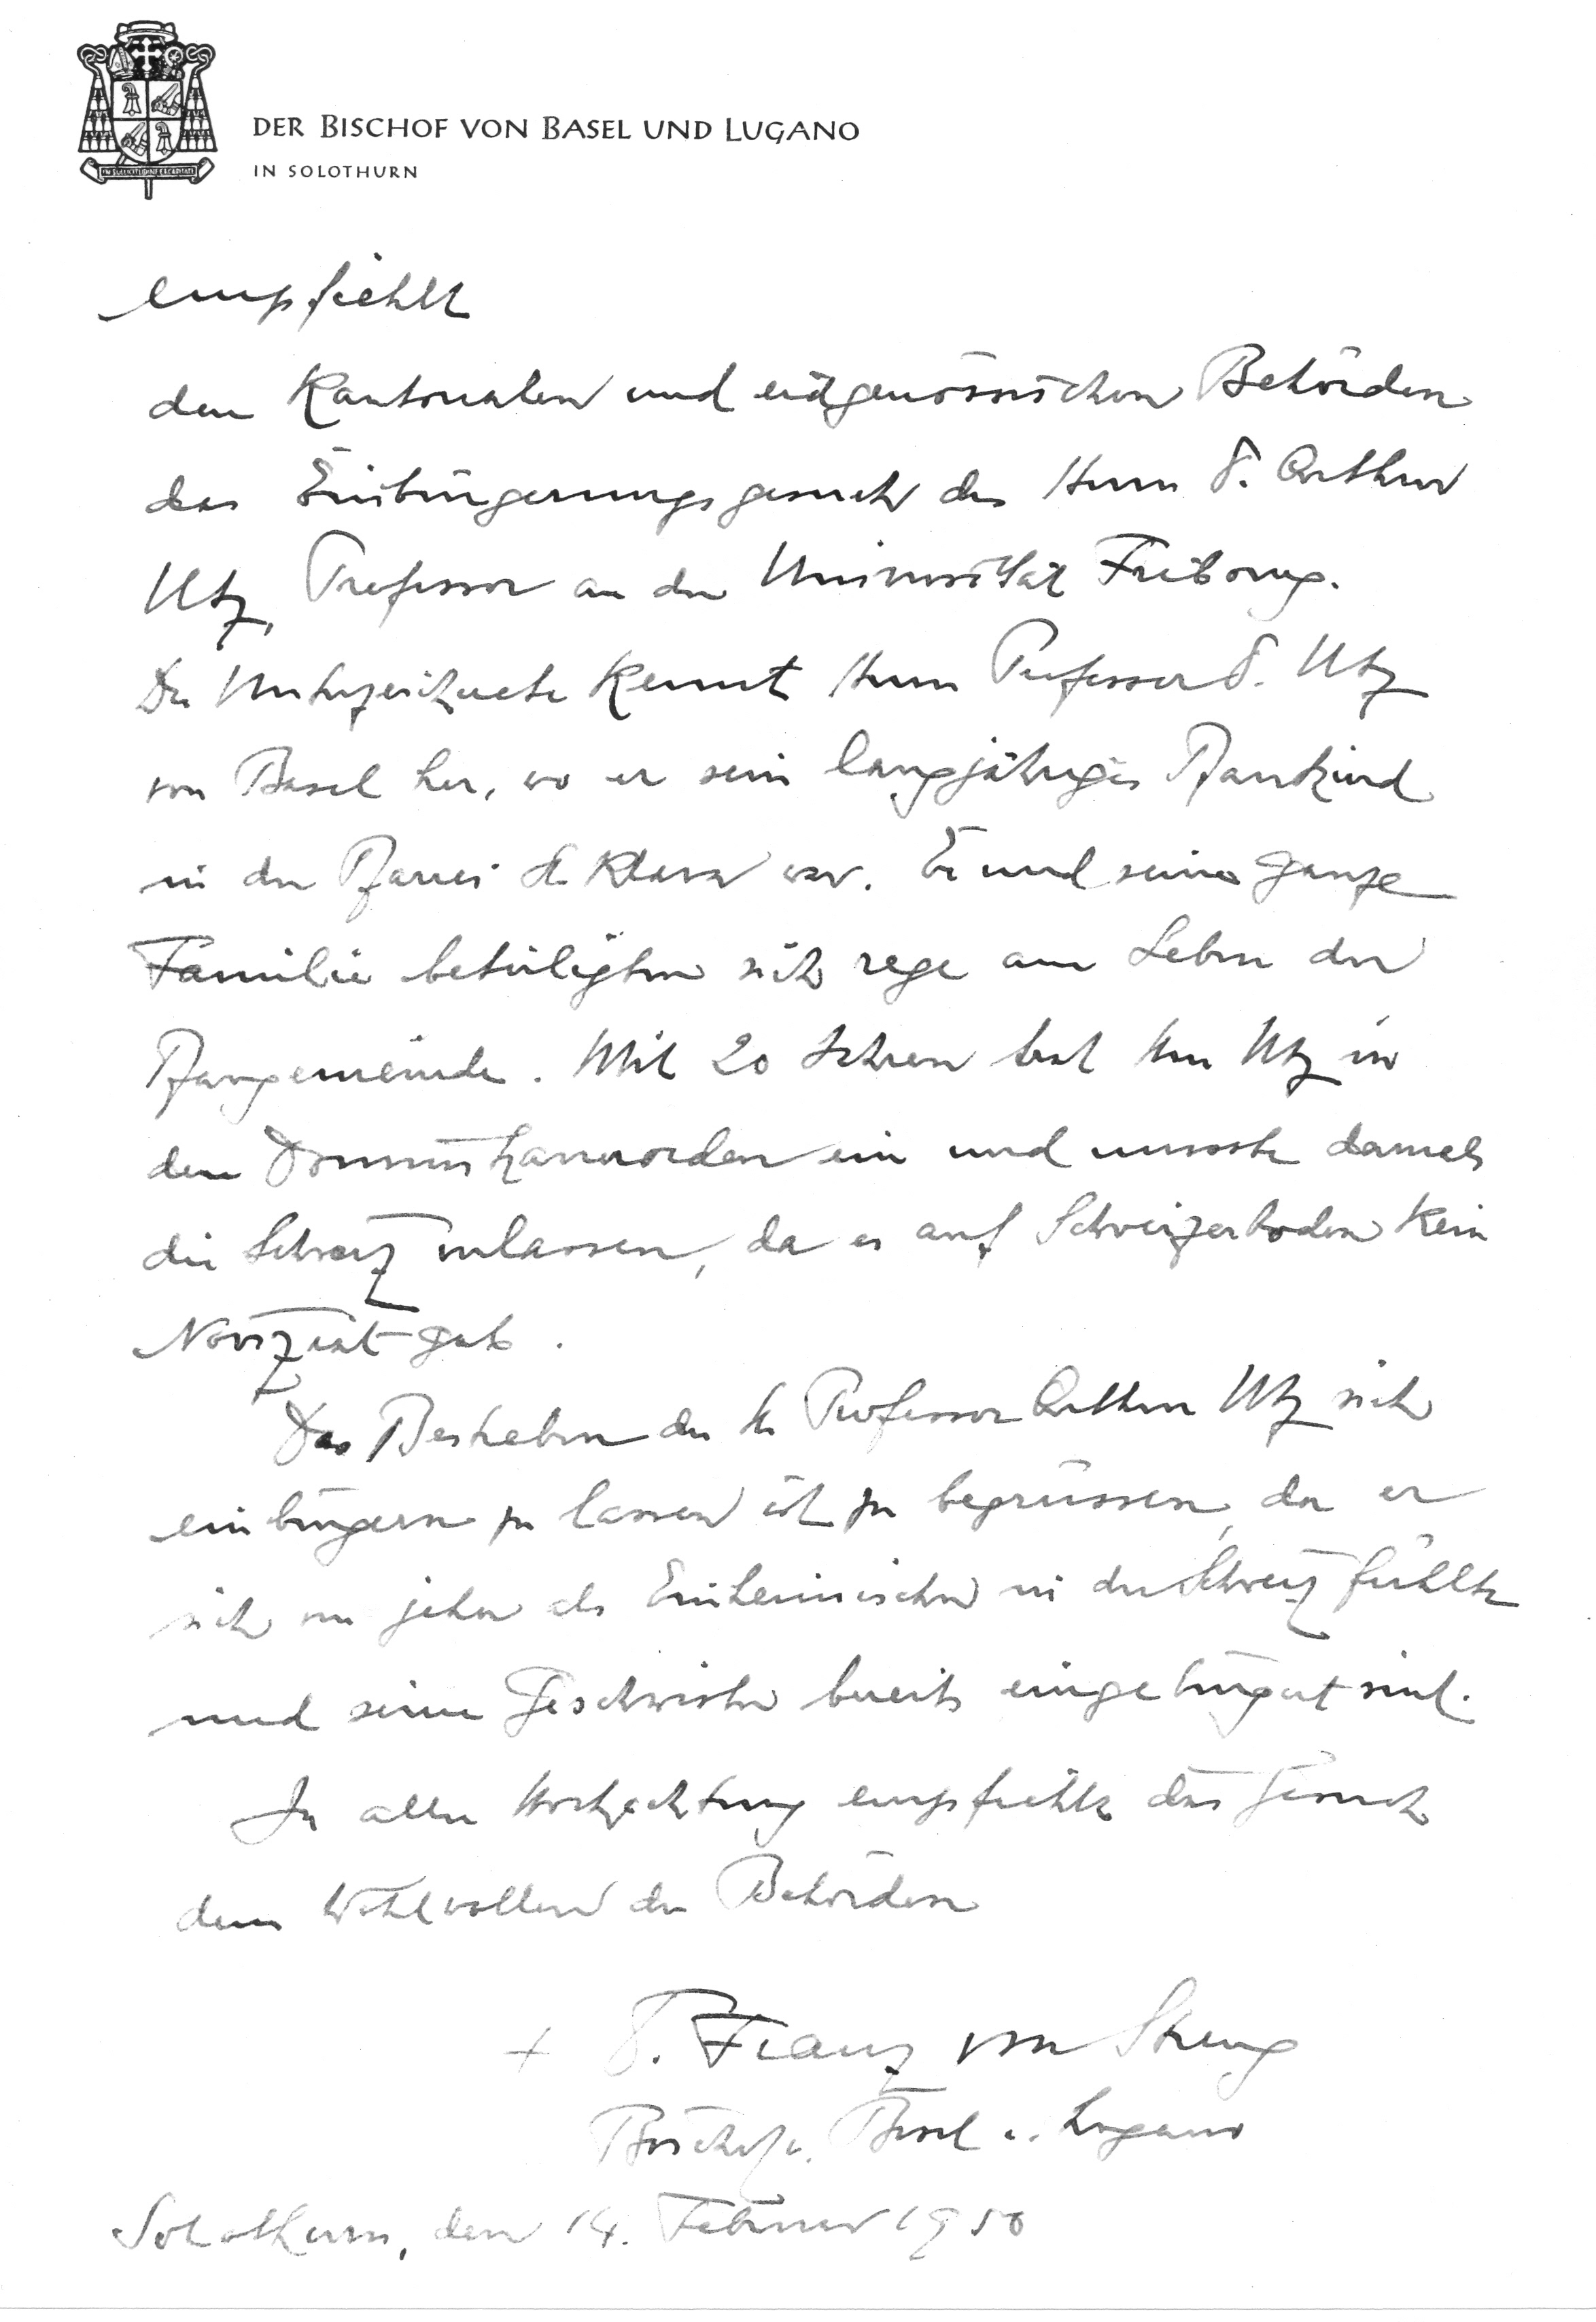 DER BISCHOF VON BASEL UND LUGANO
IN SOLOTHURN
empfiehlt
den Kantonalen und eidgenössischen Behörden
das Einbürgerungsgesuch des Herrn Arthur
Utz, Professor an der Universität Fribourg.
Der Unterzeichnete kennt Herrn Professor Utz
von Basel her, wo er sein langjähriges Pfarrkind
in der Pfarrei St. Klara war. Er und seine ganze
Familie beteiligten sich rege am Leben der
Pfarrgemeinde. Mit 20 Jahren trat Herr Utz in
den Dominikanerorden ein und musste damals
die Schweiz verlassen, da es auf Schweizerboden kein
Noviziat gab.
Das Bestreben des H. Professor Arthur Utz sich
einbürgern zu lassen ist zu begrüssen, da er
sich von jeher als Einheimischer in der Schweiz fühlte
und seine Geschwister bereits eingebürgert sind.
In aller Hochachtung empfiehlt das Gesuch
dem Wohlwollen der Behörden
+ Franz von Streng
Bischof v. Basel u. Lugano
Solothurn, den 14. Februar 1950